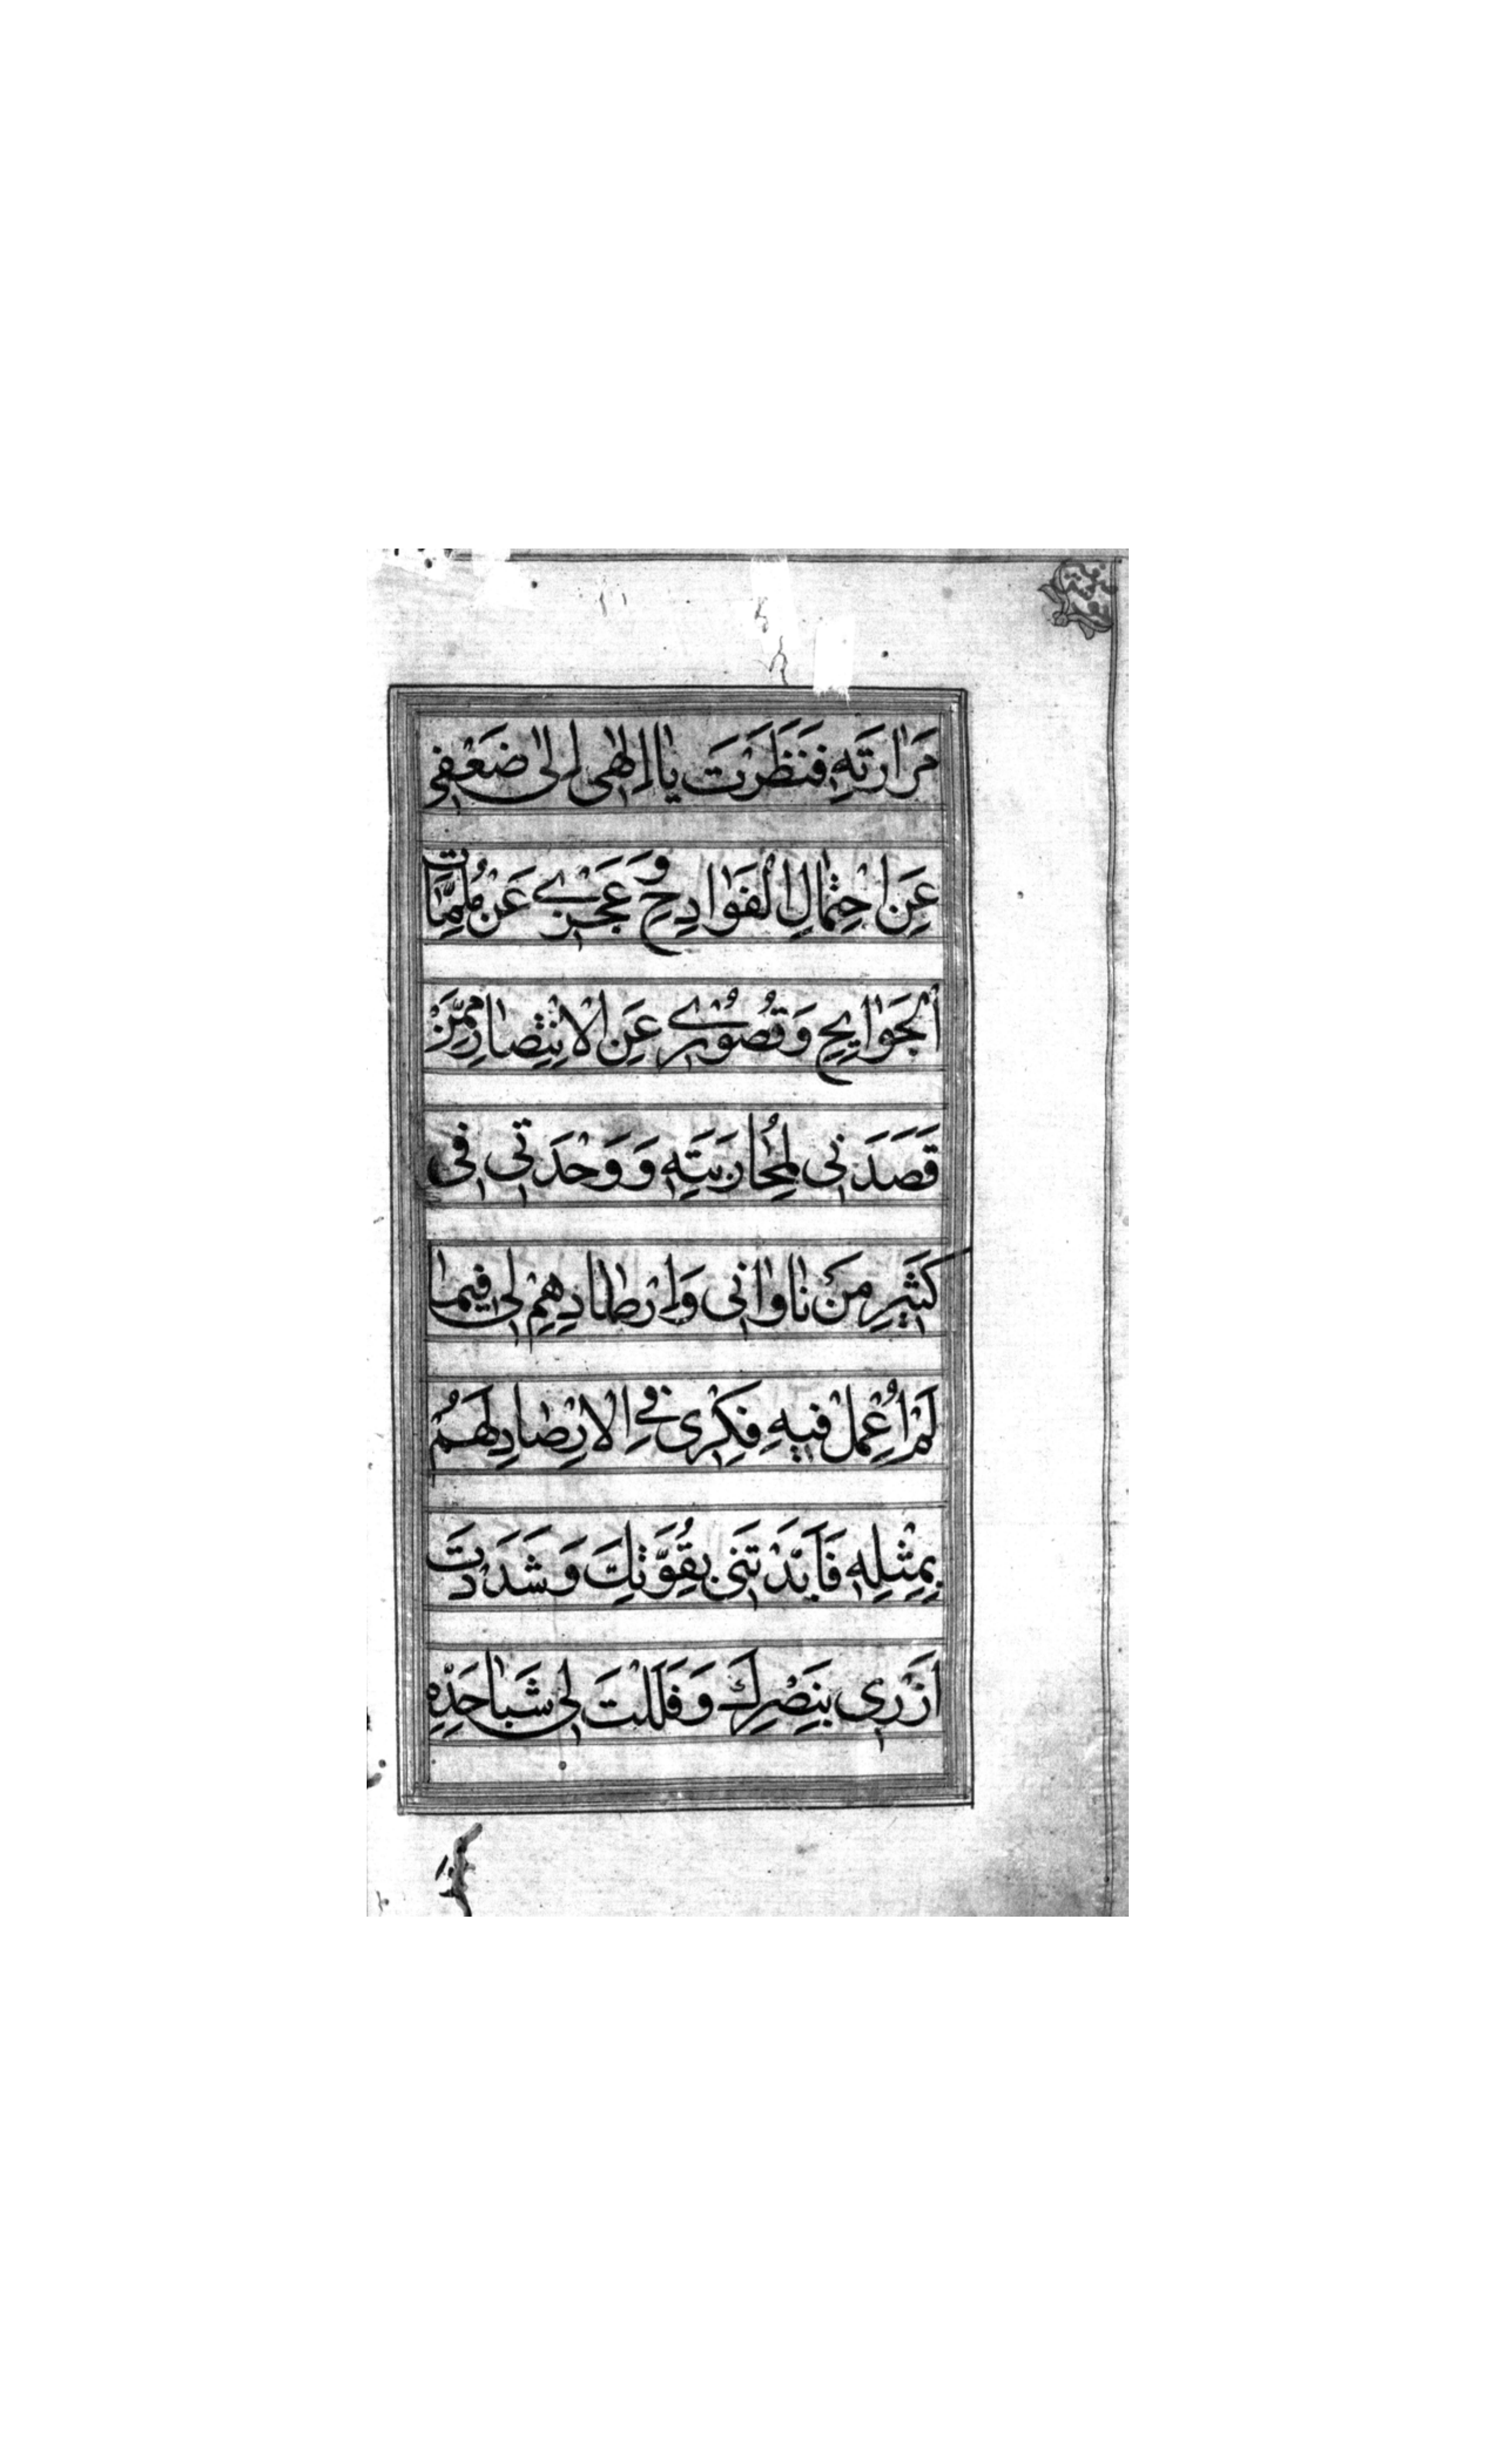 مَرٰارَتِهِ فَنَظَرْتَ يٰا اِلٰهِى اِلىٰ ضَعْفِى
عَنِ احْتِمٰالِ الْفَوٰادِحِ وَ عَجْزِى عَنْ مُلِمّٰاتِ
الْجَوٰايِحِ وَقُصُوْرِى عَنِ الْاِنْتِصٰارِ مِمَّنْ
قَصَدَنِى لِمُحٰارَبَتِهِ وَ وَحْدَتِى فِى
كَثِيْرِ مَنْ نٰاوٰانِى وَاِرْصٰادِهِمْ لِى فِيمٰا
لَمْ اُعْمِلْ فِيهِ فِكْرِى فِى الْاِرْصٰادِ لَهُمْ
بِمِثْلِهِ فَاَيَّدْتَنِى بِقُوَّتِكَ وَشَدَدْتَ
اَزْرِى بِنَصْرِكَ وَفَلَلْتَ لِى شَبٰاحَدِّهِ